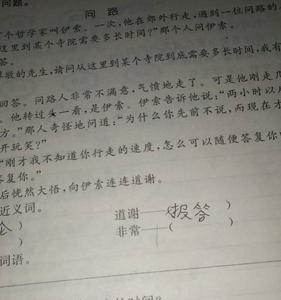 问题。
问 路
个哲学家叫伊索。一次，他在郊外行走，遇到一位问路的
这里到某个寺院需要多长时间？”那个人问伊索。
答。
敬的先生，请问从这里到某个寺院到底需要多长时间，我有
回答。问路人非常不满意，气愤地走了。可是他刚走几
。他转过头一看，是伊索。伊索告诉他说：“两小时以
方。”那人奇怪地问道：“为什么你先前不说，而现在才
开玩笑？”
“刚才我不知道你行走的速度，怎么可以随便答复你？
答复你。”
后恍然大悟，向伊索连连道谢。
近义词。
） 道谢——报答
） 非常——（ ）
词语。